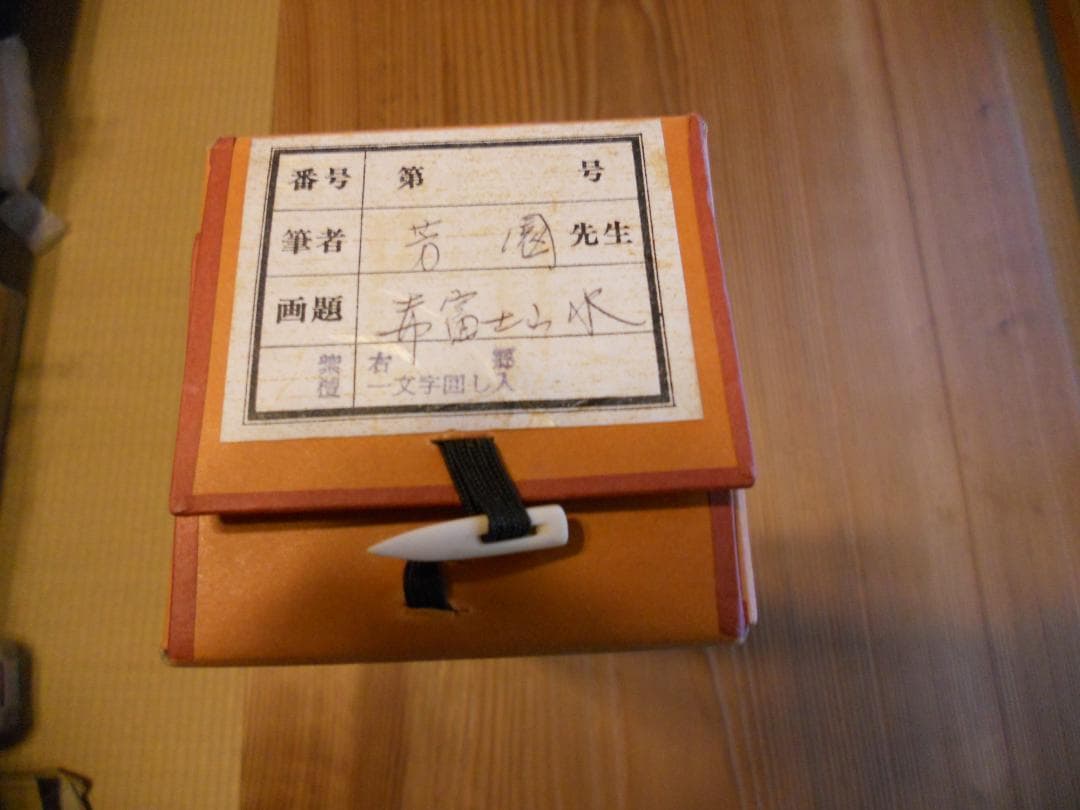 番号 第 号
筆者 芳園 先生
画題 赤富士山水
一文字囲し入